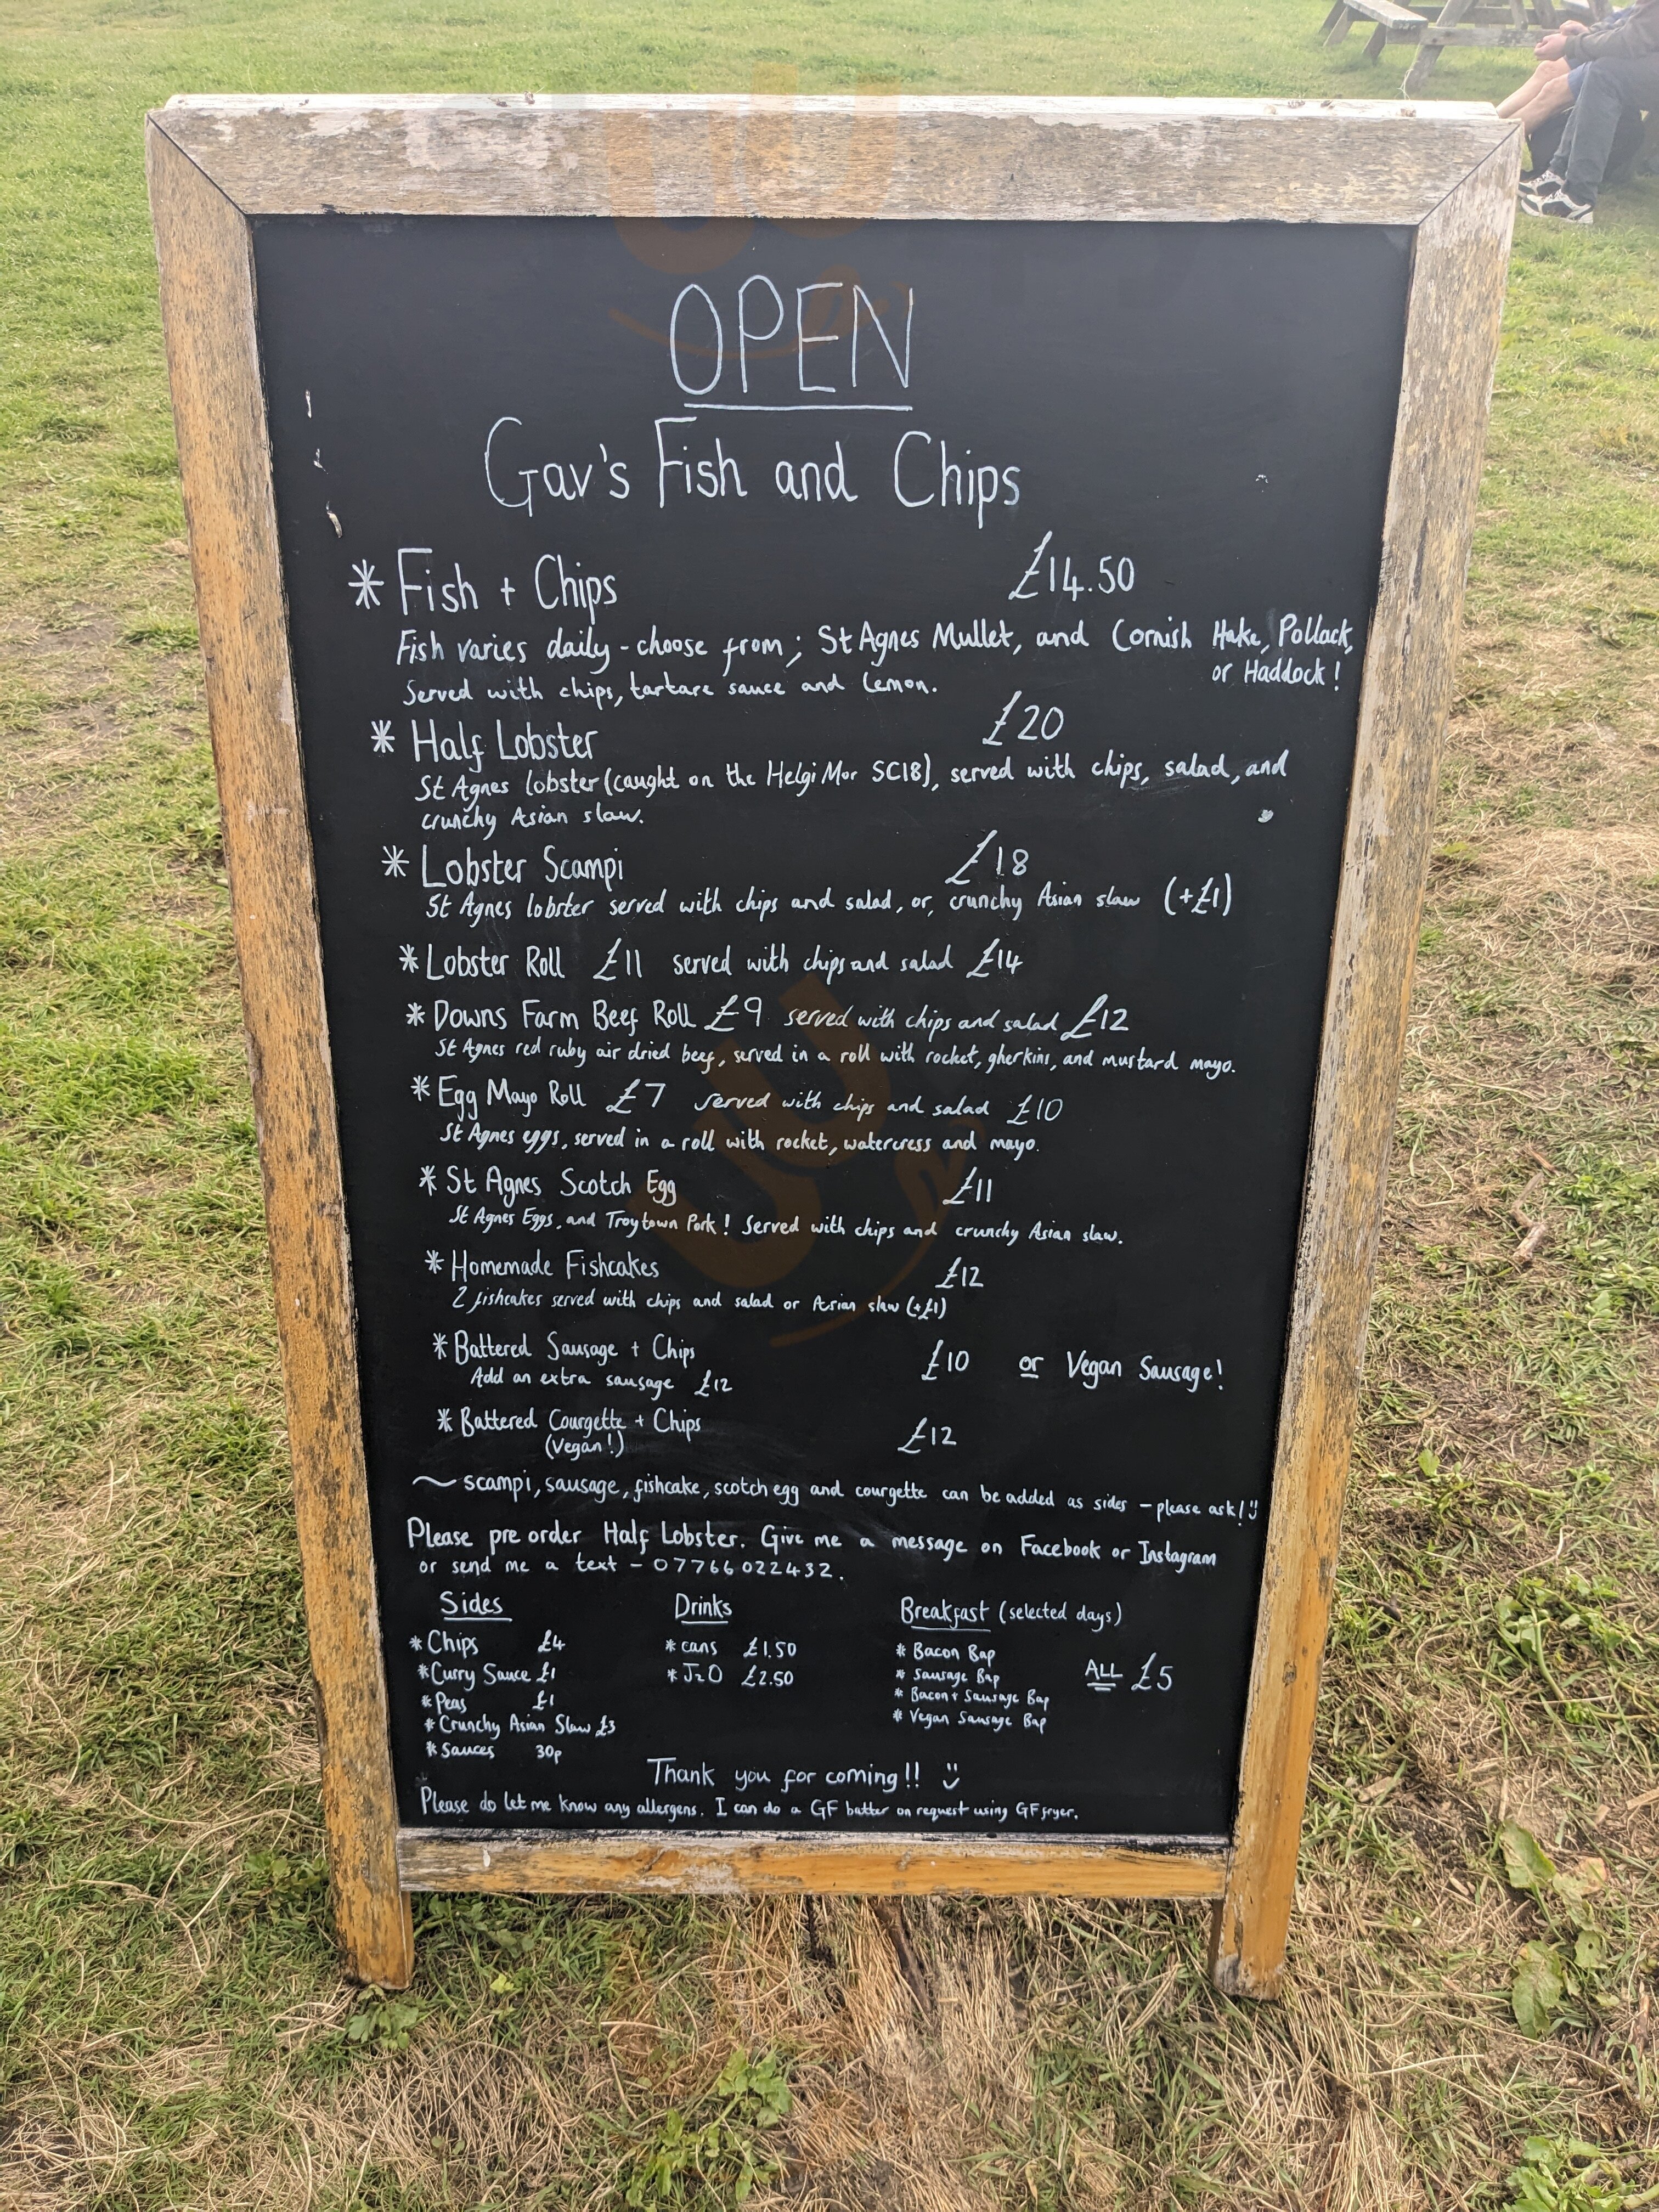 OPEN
Gav's Fish and Chips
* Fish + Chips £14.50
Fish varies daily - choose from; St Agnes Mullet, and Cornish Hake, Pollack,
or Haddock!
Served with chips, tartare sauce and lemon.
* Half Lobster £20
St Agnes lobster (caught on the Helgi Mor SC18), served with chips, salad, and
crunchy Asian slaw.
* Lobster Scampi £18
St Agnes lobster served with chips and salad, or, crunchy Asian slaw (+£1)
* Lobster Roll £11 served with chips and salad £14
* Downs Farm Beef Roll £9 served with chips and salad £12
St Agnes red ruby air dried beef, served in a roll with rocket, gherkins, and mustard mayo.
* Egg Mayo Roll £7 served with chips and salad £10
St Agnes eggs, served in a roll with rocket, watercress and mayo.
* St Agnes Scotch Egg £11
St Agnes Eggs, and Troytown Pork! Served with chips and crunchy Asian slaw.
* Homemade Fishcakes £12
2 fishcakes served with chips and salad or Asian slaw (+£1)
* Battered Sausage + Chips £10 or Vegan Sausage!
Add an extra sausage £12
* Battered Courgette + Chips £12
(Vegan!)
~ scampi, sausage, fishcake, scotch egg and courgette can be added as sides - please ask!
Please pre order Half Lobster. Give me a message on Facebook or Instagram
or send me a text - 07766022432.
Sides
* Chips £4
* Curry Sauce £1
* Peas £1
* Crunchy Asian Slaw £3
* Sauces 30p
Drinks
* cans £1.50
* J2O £2.50
Breakfast (selected days)
* Bacon Bap
* Sausage Bap
* Bacon + Sausage Bap
* Vegan Sausage Bap
ALL £5
Thank you for coming!!
Please do let me know any allergens. I can do a GF batter on request using GF fryer.